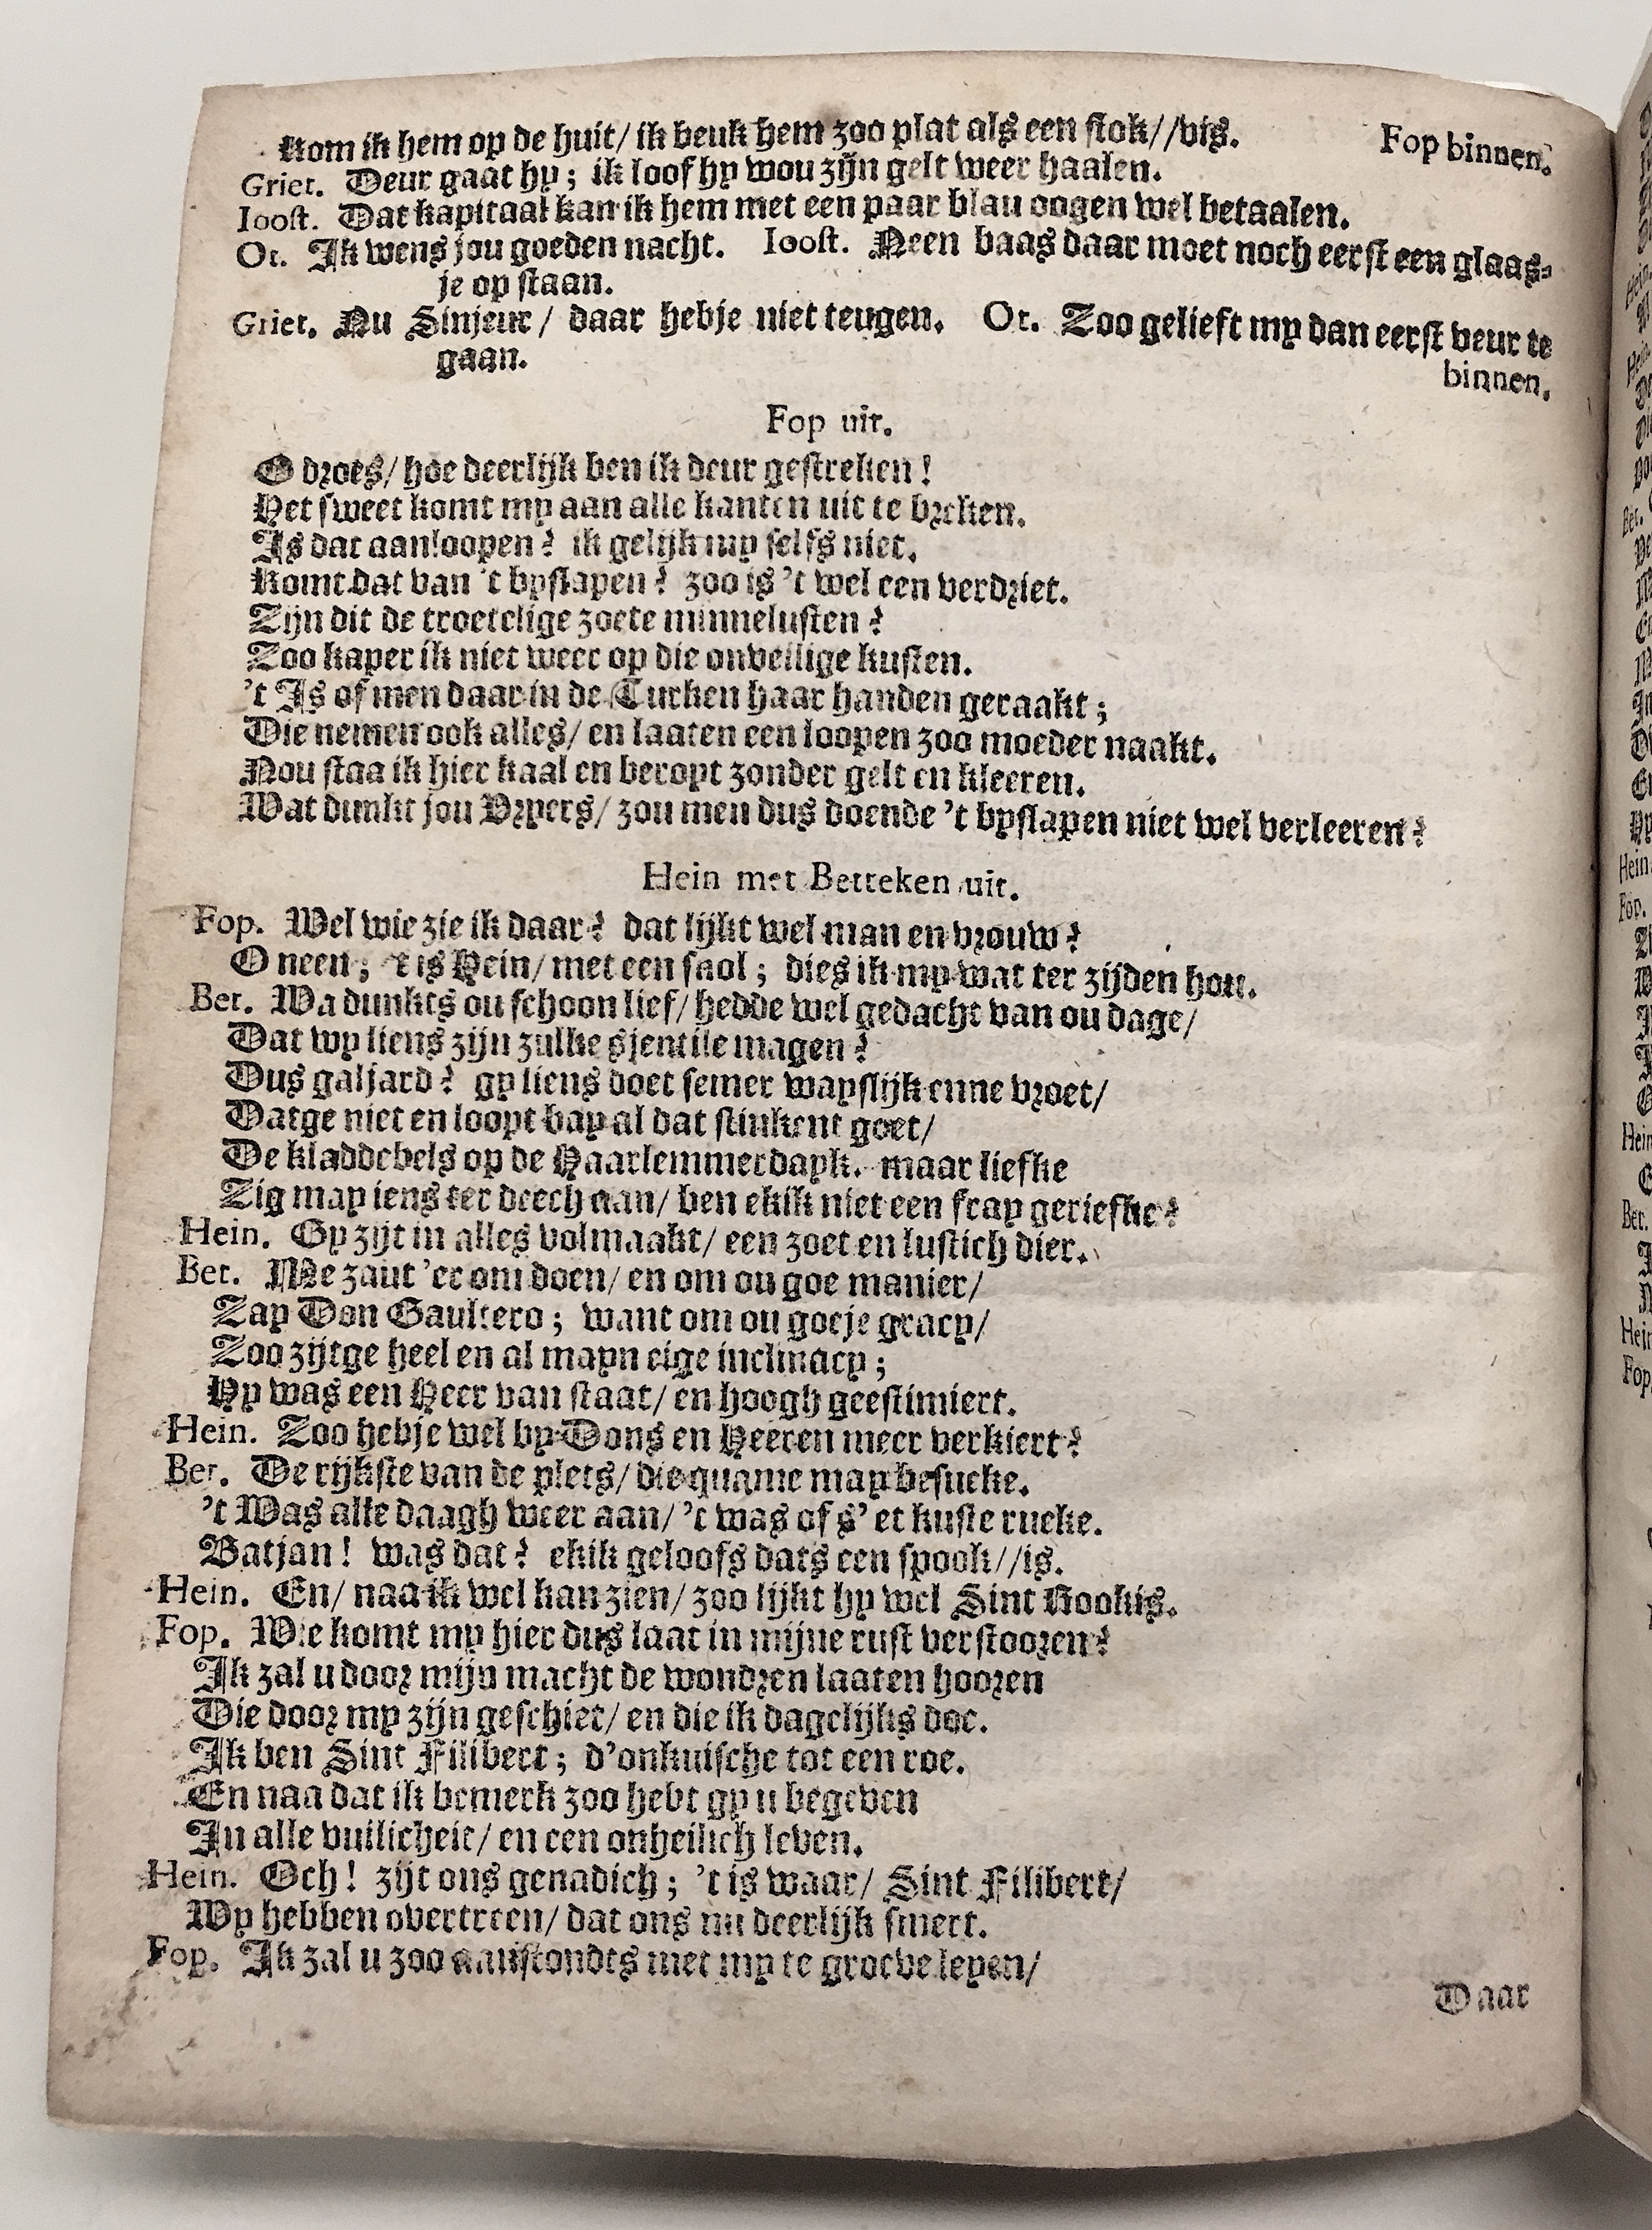 kom ik hem op de huit/ ik beuk hem zoo plat als een stok//vis. Fop binnen.
Griet. Deur gaat hy; ik loof hy wou zijn gelt weer haalen.
Ioost. Dat kapitaal kan ik hem met een paar blau oogen wel betaalen.
Ot. Ik wens jou goeden nacht. Ioost. Neen baas daar moet noch eerst een glaas-
je op staan.
Griet. Nu Sinjeur/ daar hebje niet teugen. Ot. Zoo gelieft my dan eerst veur te
gaan. binnen.
Fop uit.
O droes/ hoe deerlijk ben ik deur gestreken!
Het sweet komt my aan alle kanten uit te breken.
Is dat aanloopen? ik gelijk my selfs niet.
Komt dat van 't byslapen? zoo is 't wel een verdriet.
Zijn dit de troetelige zoete minnelusten?
Zoo kaper ik niet weer op die onveilige kusten.
't Is of men daar in de Turken haar handen geraakt;
Die nemen ook alles/ en laaten een loopen zoo moeder naakt.
Nou staa ik hier kaal en beropt zonder gelt en kleeren.
Wat dunkt jou Vryers/ zou men dus doende 't byslapen niet wel verleeren?
Hein met Betteken uit.
Fop. Wel wie zie ik daar? dat lijkt wel man en vrouw?
O neen; 't is Hein/ met een snol; dies ik my wat ter zijden hou.
Bet. Wa dunkts ou schoon lief/ hedde wel gedacht van ou dage/
Dat wy liens zijn zulke sjentile magen?
Dus galjard? gy liens doet semer wayslijk enne vroet/
Datge niet en loopt bay al dat stinkent goet/
De kladdebels op de Haarlemmerdayk. maar liefke
Zig may iens ter deech aan/ ben ekik niet een fray geriefke?
Hein. Gy zijt in alles volmaakt/ een zoet en lustich dier.
Bet. Me zaut 'er om doen/ en om ou goe manier/
Zay Don Gaultero; want om ou goeje gracy/
Zoo zijtge heel en al mayn eige inclinacy;
Hy was een Heer van staat/ en hoogh geestimiert.
Hein. Zoo hebje wel by Dons en Heeren meer verkiert?
Bet. De rijkste van de plets/ die quame may besueke.
't Was alle daagh weer aan/ 't was of s' et kuste rueke.
Batjan! was dat? ekik geloofs dats een spook//is.
Hein. En/ naa ik wel kan zien/ zoo lijkt hy wel Sint Rookis.
Fop. Wie komt my hier dus laat in mijne rust verstooren?
Ik zal u door mijn macht de wondren laaten hooren
Die door my zijn geschiet/ en die ik dagelijks doe.
Ik ben Sint Filibert; d'onkuische tot een roe.
En naa dat ik bemerk zoo hebt gy u begeven
In alle vuilicheit/ en een onheilich leven.
Hein. Och! zijt ons genadich; 't is waar/ Sint Filibert/
Wy hebben overtreen/ dat ons nu deerlijk smert.
Fop. Ik zal u zoo aanstondts met my te groeve leyen/
Daar